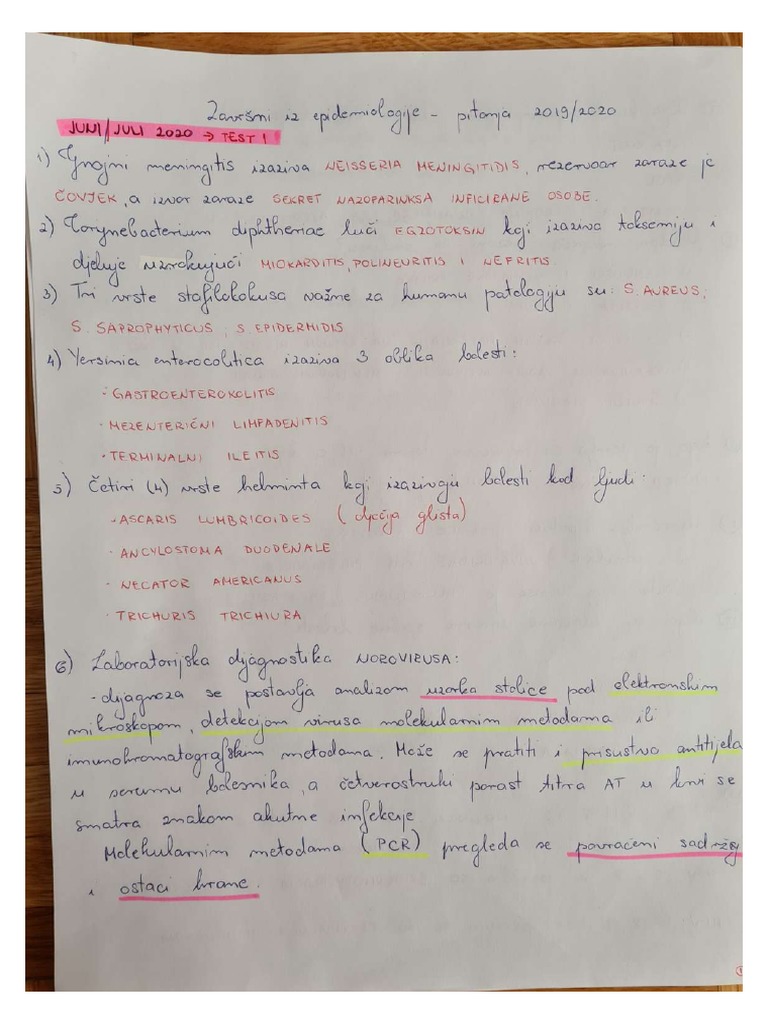 Završni iz epidemiologije - pitanja 2019/2020
JUNI/JULI 2020 → TEST 1
1) Gnojni meningitis izaziva NEISSERIA MENINGITIDIS, rezervoar zaraze je
ČOVJEK, a izvor zaraze SEKRET NAZOFARINKSA INFICIRANE OSOBE.
2) Corynebacterium diphtheriae luči EGZOTOKSIN koji izaziva toksemiju i
djeluje uzrokujući MIOKARDITIS, POLINEURITIS I NEFRITIS.
3) Tri vrste stafilokokusa važne za humanu patologiju su: S. AUREUS;
S. SAPROPHYTICUS; S. EPIDERMIDIS
4) Yersinia enterocolitica izaziva 3 oblika bolesti:
· GASTROENTEROKOLITIS
· MEZENTERIČNI LIMFADENITIS
· TERMINALNI ILEITIS
5) Četiri (4) vrste helminta koji izazivaju bolesti kod ljudi:
· ASCARIS LUMBRICOIDES (dječija glista)
· ANCYLOSTOMA DUODENALE
· NECATOR AMERICANUS
· TRICHURIS TRICHIURA
6) Laboratorijska dijagnostika NOROVIRUSA:
- dijagnoza se postavlja analizom uzorka stolice pod elektronskim
mikroskopom, detekcijom virusa molekularnim metodama ili
imunohromatografskim metodama. Može se pratiti i prisustvo antitijela
u serumu bolesnika, a četverostruki porast titra AT u krvi se
smatra znakom akutne infekcije
Molekularnim metodama (PCR) pregleda se povraćeni sadržaj
i ostaci hrane.
1